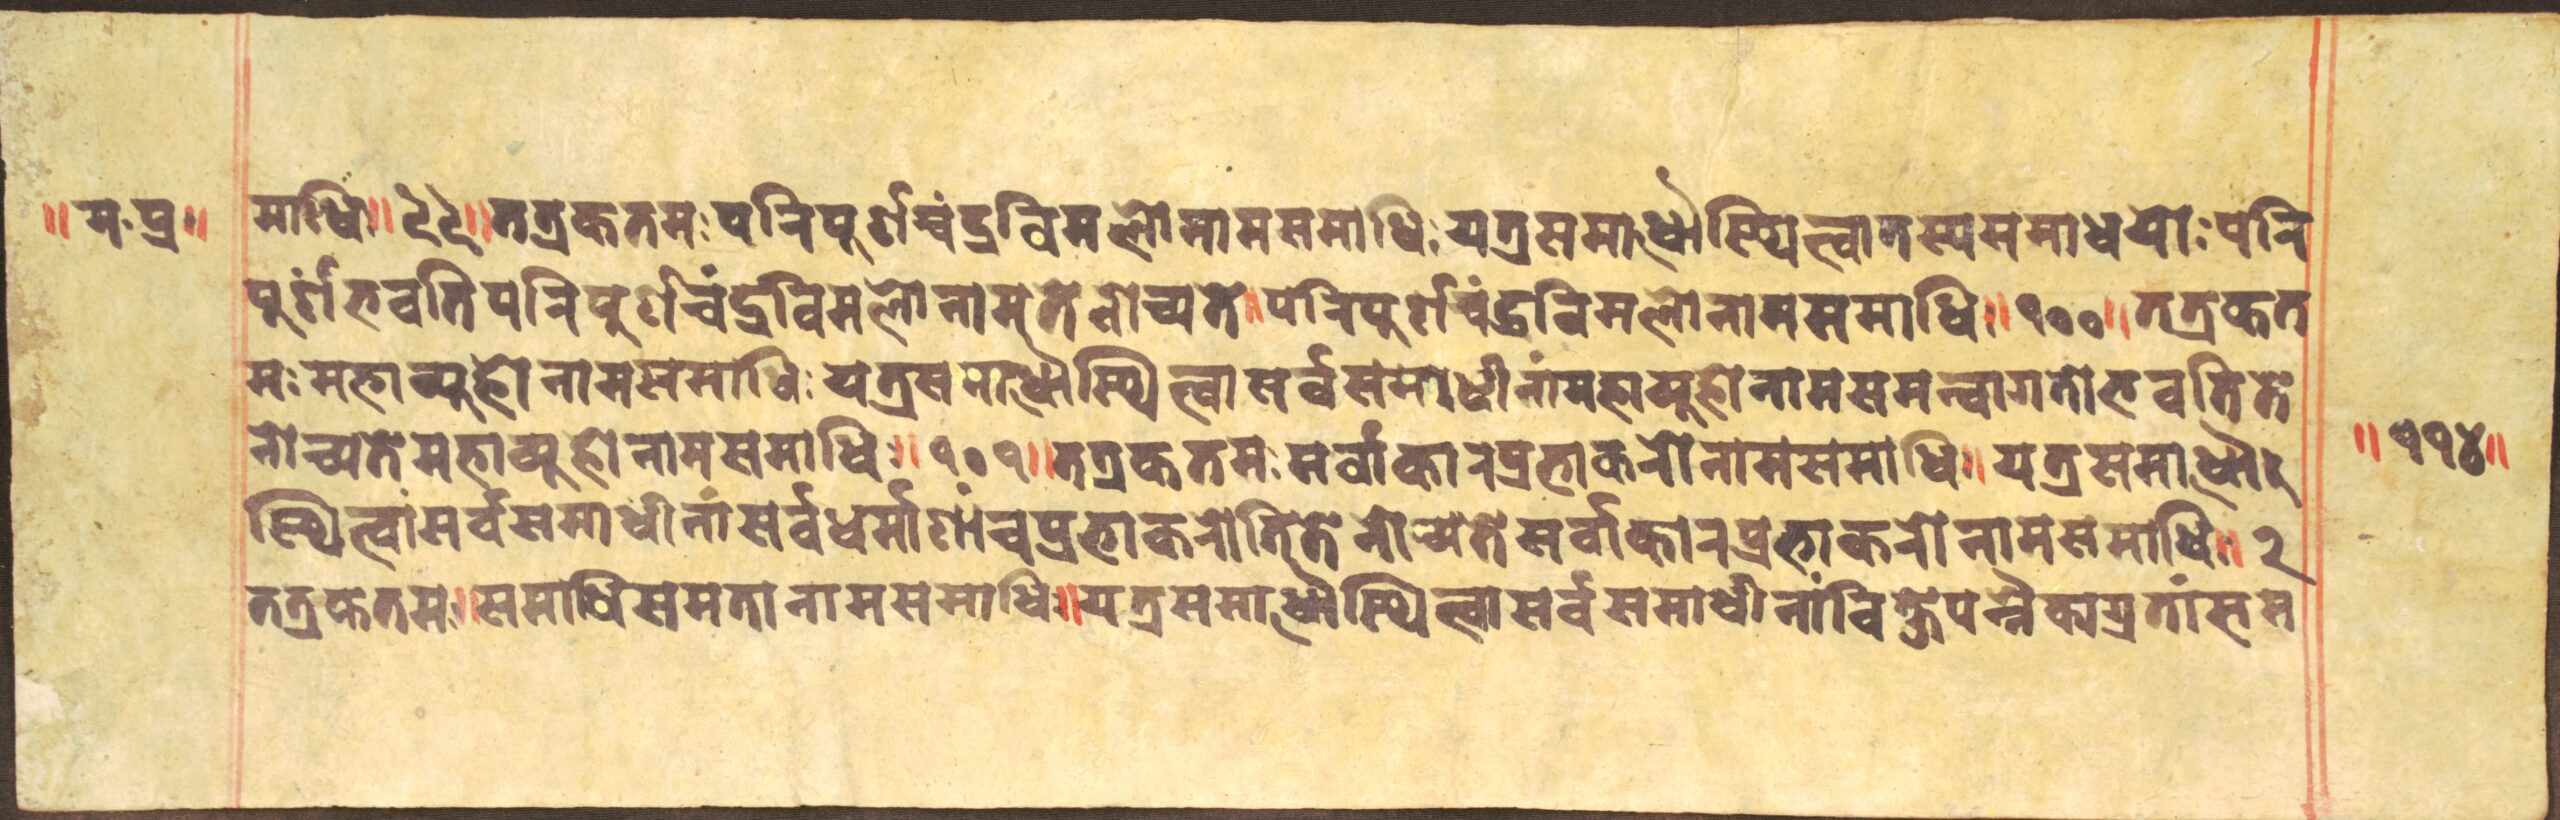 ॥म·प्र॥
माधिः॥९९॥तत्रकतमःपरिपुर्णचंद्रविमलोनामसमाधिःयत्रसमाधौस्थित्वातस्यसमाधयोःपरि
पुर्णंभवतिपरिपुर्णचंद्रविमलोनामतेनोच्यते॥परिपुर्णचंद्रविमलोनामसमाधिः॥१००॥तत्रकत
मःमहाव्युहोनामसमाधिःयत्रसमाधौस्थित्वासर्वसमाधीनांमहाव्युहोनामसमन्वागतोभवतिते
नोच्यतेमहाव्युहोनामसमाधिः॥१०१॥तत्रकतमःसर्वाकारप्रभाकरोनामसमाधिः॥यत्रसमाधौ
स्थित्वांसर्वसमाधीनांसर्वधर्माणांचप्रभाकरोतितेनोच्यतेसर्वाकारप्रभाकरोनामसमाधिः॥२
तत्रकतमः॥समाधिसमतानामसमाधिः॥यत्रसमाधौस्थित्वासर्वसमाधीनांविक्षेपन्नैकाग्रतांस
॥११४॥